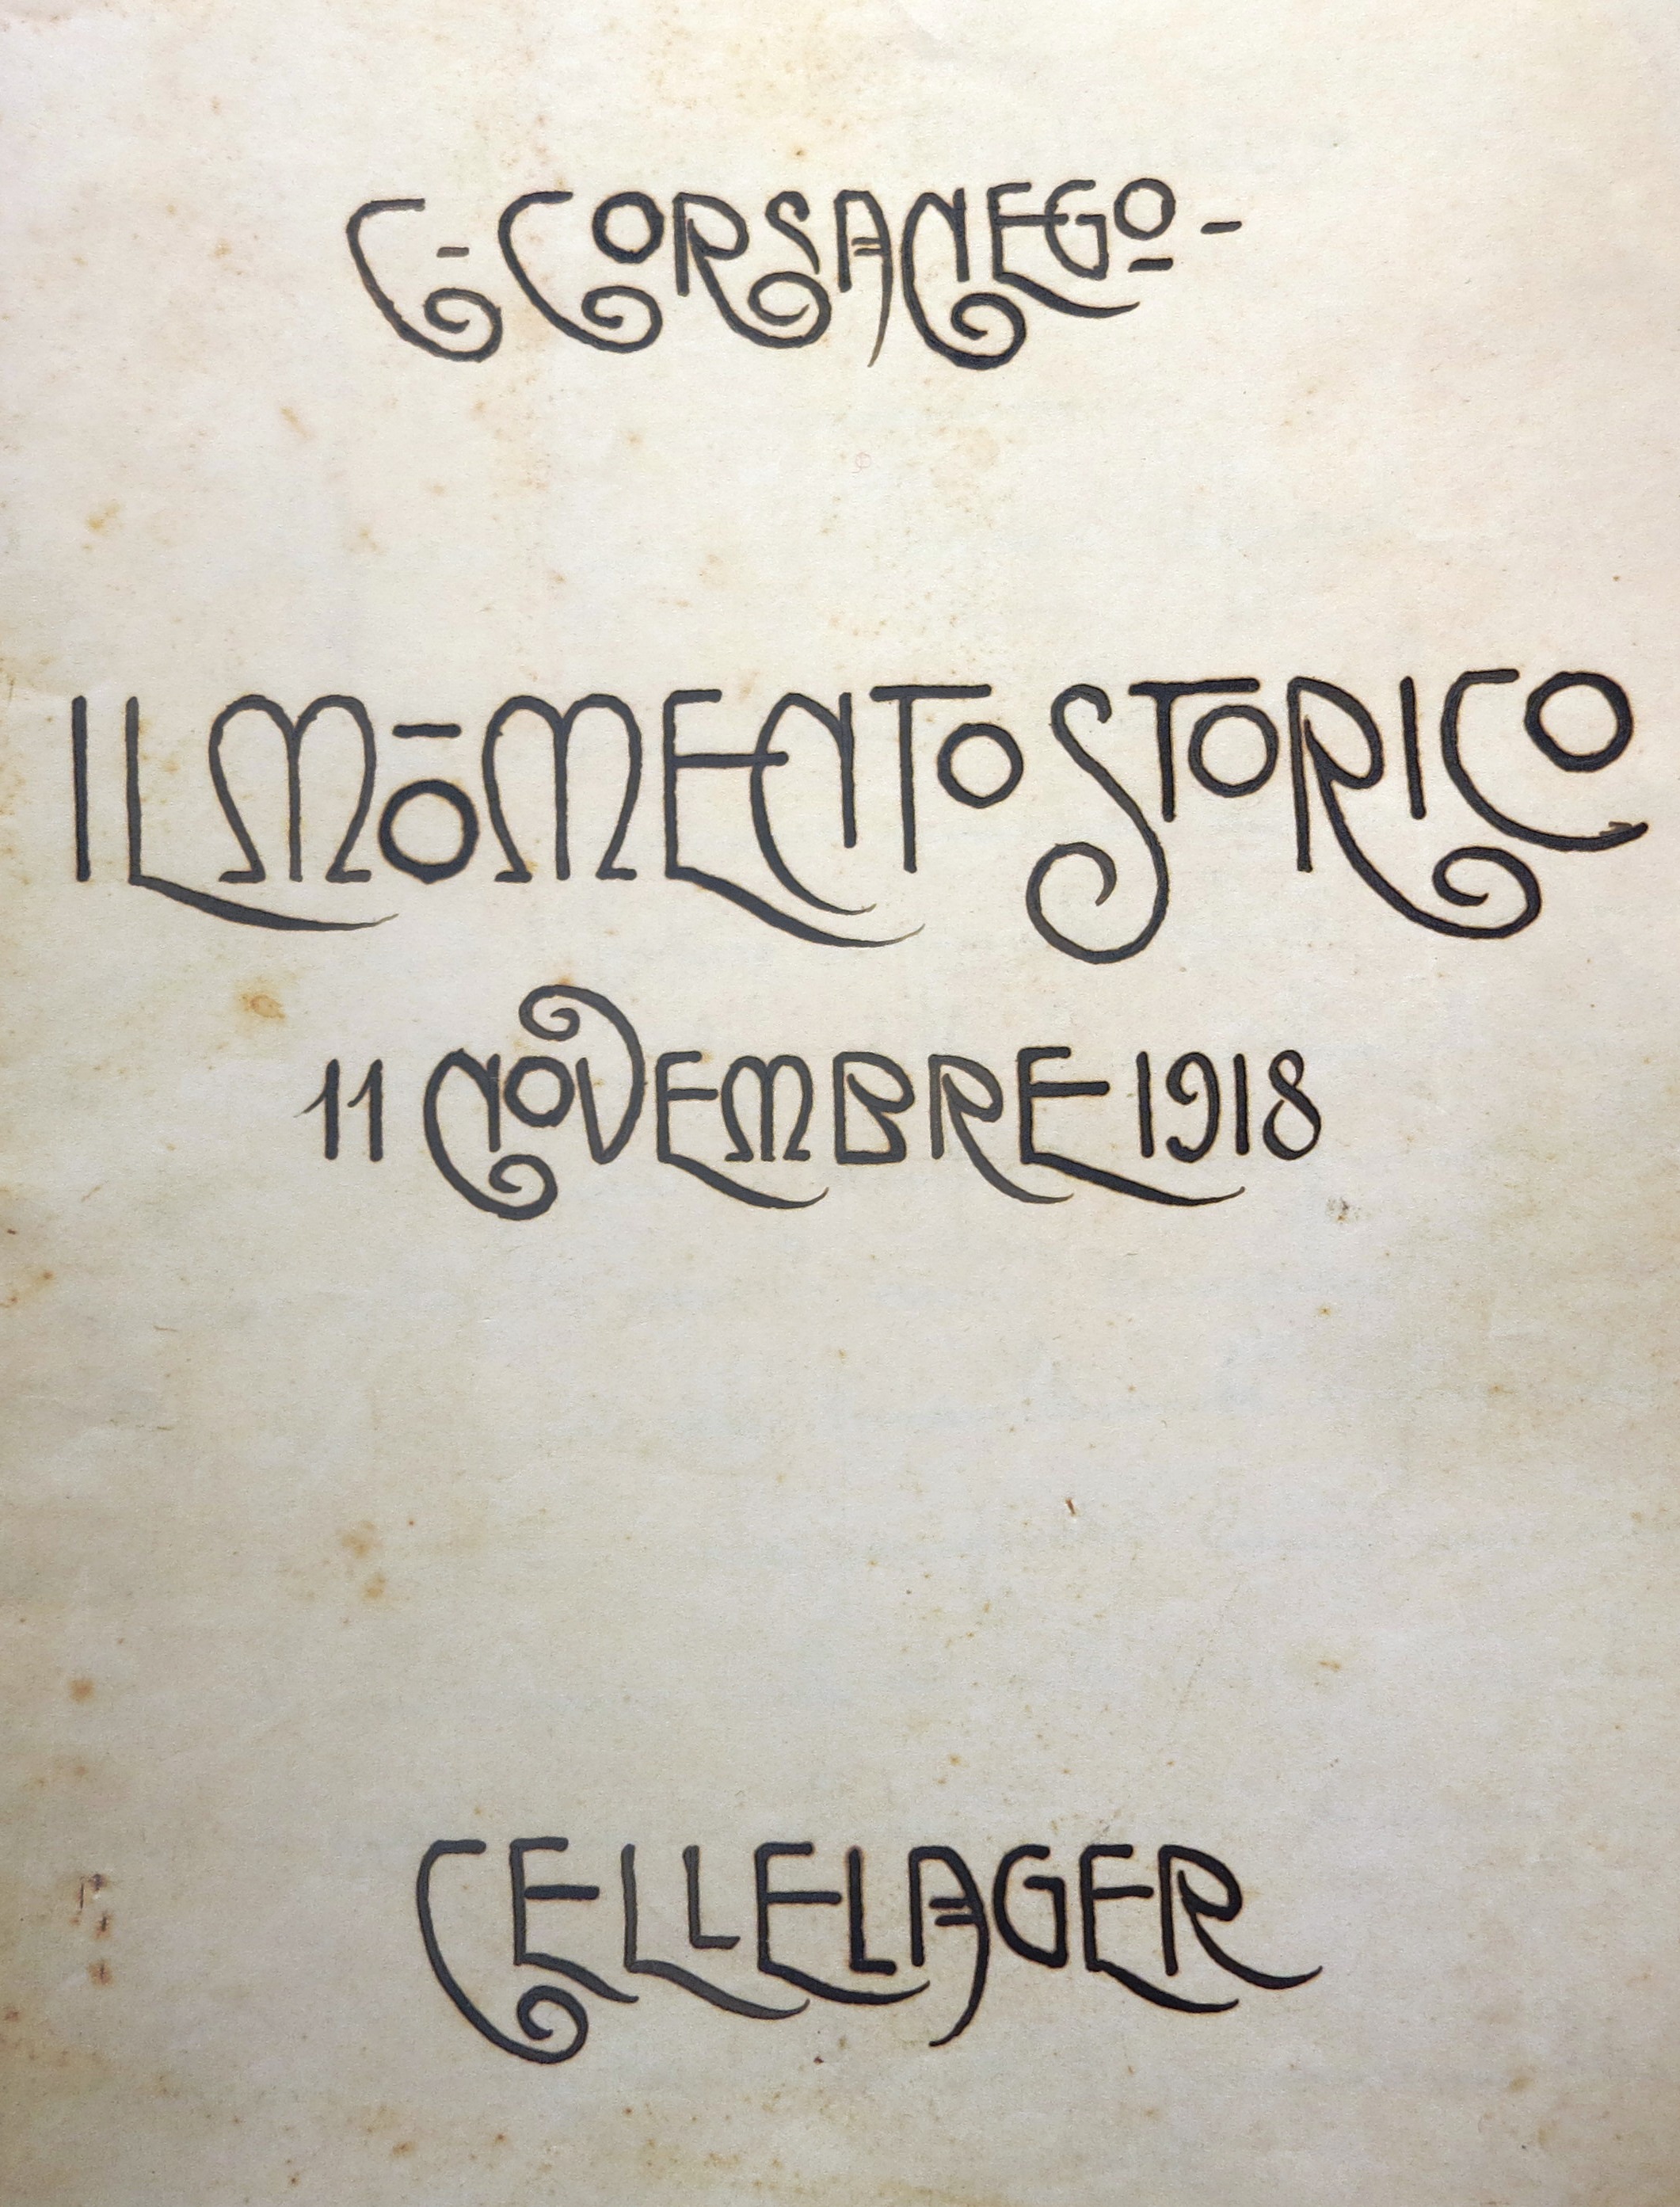 C- CORSANEGO-
IL MOMENTO STORICO
11 NOVEMBRE 1918
CELLELAGER